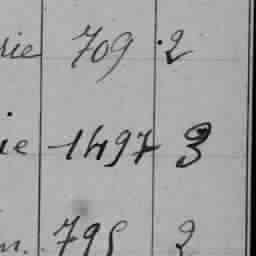 rie 709 2
ie 1497 3
n. 795 2